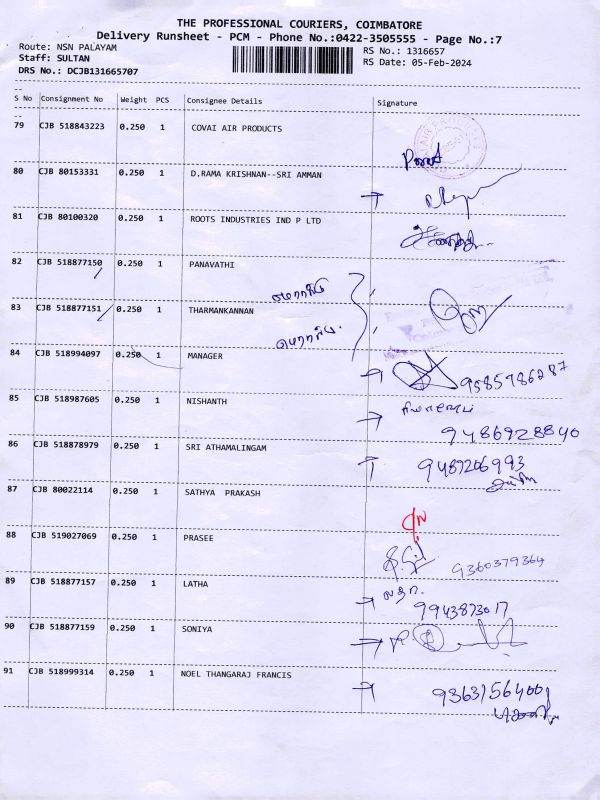 THE PROFESSIONAL COURIERS, COIMBATORE
Delivery Runsheet - PCM - Phone No.:0422-3505555 - Page No.:7
Route: NSN PALAYAM
RS No.: 1316657
Staff: SULTAN
RS Date: 05-Feb-2024
DRS No.: DCJB131665707
S No Consignment No Weight PCS Consignee Details Signature
79 CJB 518843223 0.250 1 COVAI AIR PRODUCTS
80 CJB 80153331 0.250 1 D.RAMA KRISHNAN--SRI AMMAN
81 CJB 80100320 0.250 1 ROOTS INDUSTRIES IND P LTD
82 CJB 518877150 0.250 1 PANAVATHI
83 CJB 518877151 0.250 1 THARMANKANNAN
84 CJB 518994097 0.250 1 MANAGER
9585786287
85 CJB 518987605 0.250 1 NISHANTH
9486928840
86 CJB 518878979 0.250 1 SRI ATHAMALINGAM
9487206993
87 CJB 80022114 0.250 1 SATHYA PRAKASH
88 CJB 519027069 0.250 1 PRASEE
9360379364
89 CJB 518877157 0.250 1 LATHA
லதா.
9943873017
90 CJB 518877159 0.250 1 SONIYA
91 CJB 518999314 0.250 1 NOEL THANGARAJ FRANCIS